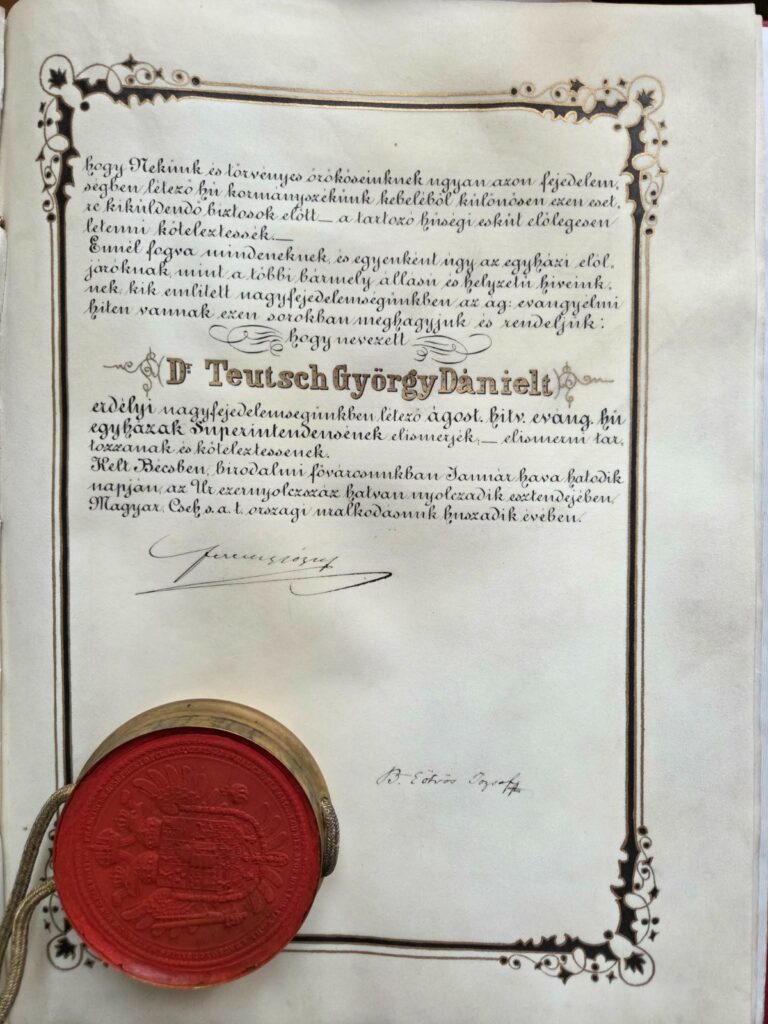 hogy Nekünk és törvényes örököseinknek ugyan azon fejedelem,
ségben létező hű kormányszékünk kebeléből különösen ezen eset,
re kiküldendő biztosok előtt — a tartozó hűségi esküt előlegesen
letenni köteleztessék. —
Ennél fogva mindeneknek, és egyenként úgy az egyházi elöl,
járóknak, mint a többi bármely állású és helyzetű híveink,
nek, kik említett nagyfejedelemségünkben az ág: evangyélmi
hiten vannak ezen sorokban meghagyjuk és rendeljük:
hogy nevezett
Dr. Teutsch György Dánielt
erdélyi nagyfejedelemségünkben létező ágost. hitv. evang. hű
egyházak Superintendensének elismerjék, — elismerni tar,
tozzanak és köteleztessenek.
Kelt Bécsben, birodalmi fővárosunkban Január hava hatodik
napján, az Úr ezernyolczszáz hatvan nyolczadik esztendejében,
Magyar, Cseh s. a. t. országi uralkodásunk huszadik évében.
Ferencz József
B. Eötvös József